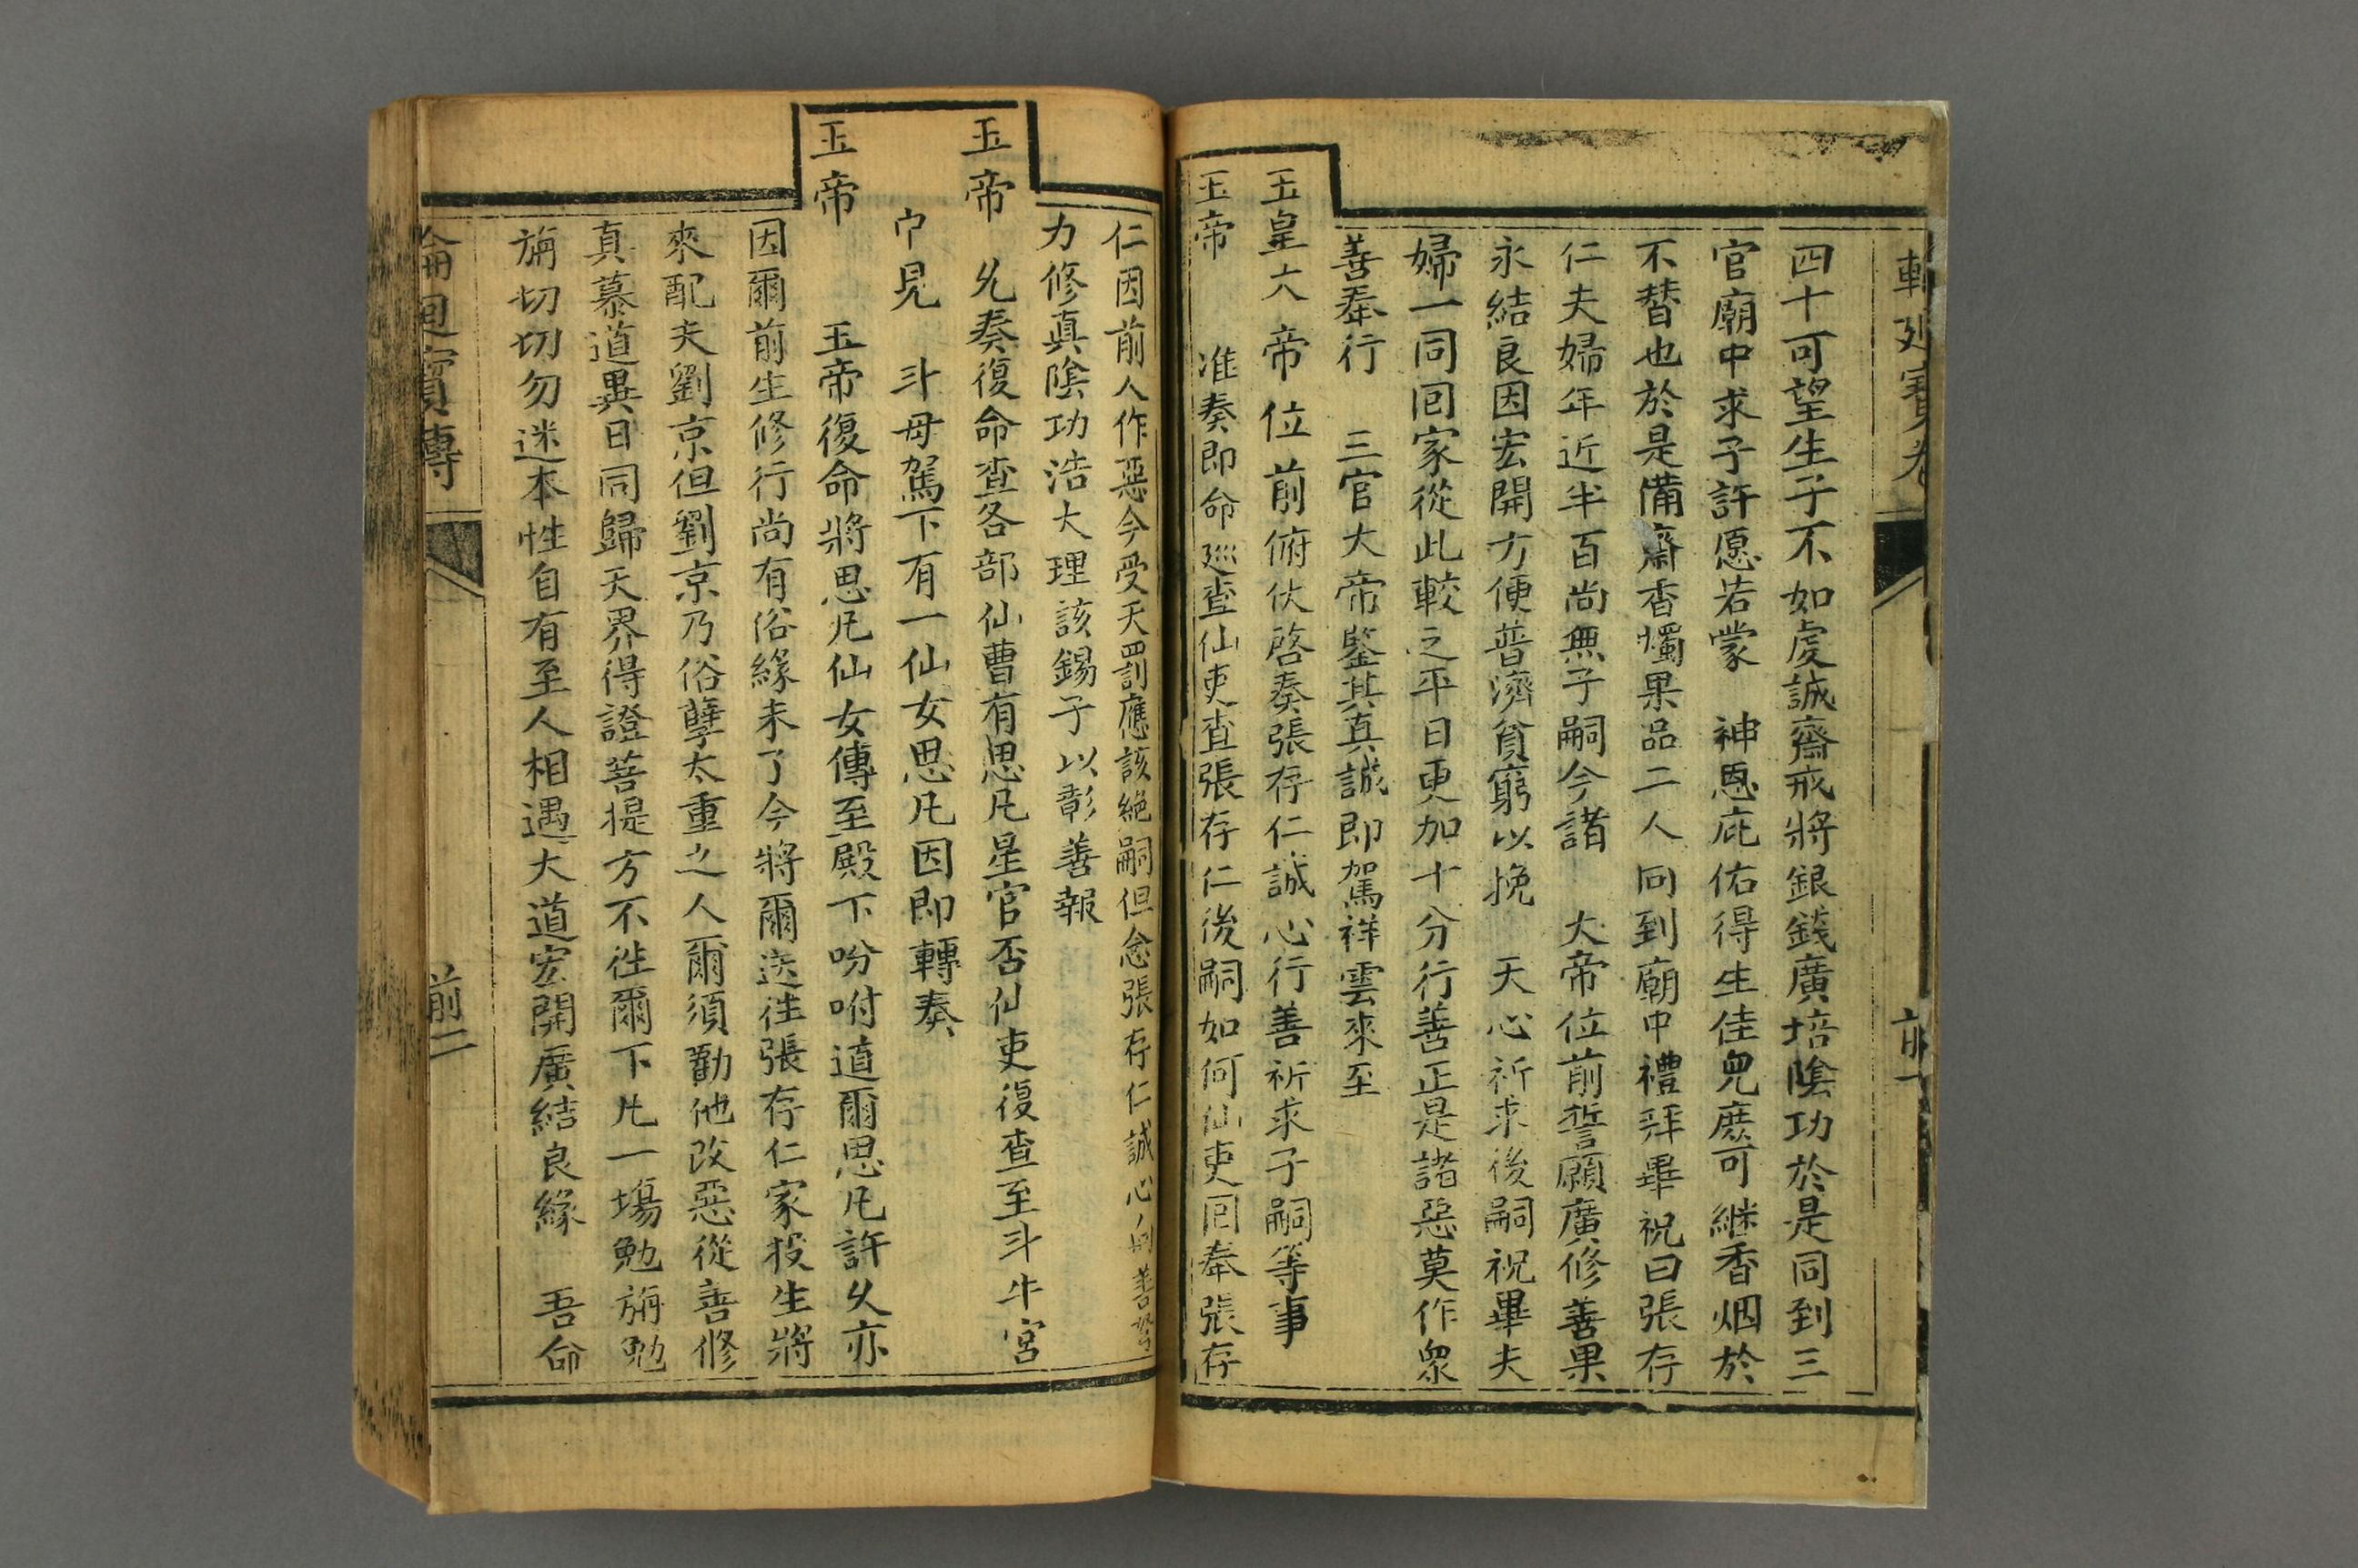 四十可望生子不如虔誠齋戒將銀錢廣培陰功於是同到三
官廟中求子許愿若蒙　神恩庇佑得生佳兒庶可継香烟於
不替也於是備齋香燭果品二人同到廟中禮拜畢祝曰張存
仁夫婦年近半百尚無子嗣今諧　大帝位前誓願廣修善果
永結良因宏開方便普濟貧窮以挽　天心祈求後嗣祝畢夫
婦一同囘家從此較之平日更加十分行善正是諸惡莫作衆
善奉行　三官大帝鑒其真誠即駕祥雲來至
玉皇大帝位前俯伏啓奏張存仁誠心行善祈求子嗣等事
玉帝　准奏即命廵查仙吏查張存仁後嗣如何仙吏囘奉張存
仁因前人作惡今受天罰應該絶嗣但念張存仁誠心向善
力修真陰功浩大理該錫子以彰善報
玉帝　允奏復命查各部仙曹有思凡星官否仙吏復查至斗牛宮
中見　斗母駕下有一仙女思凡因即轉奏
玉帝　玉帝復命將思凡仙女傳至殿下吩咐道爾思凡許久亦
因爾前生修行尚有俗緣未了今將爾送往張存仁家投生將
來配夫劉京但劉京乃俗孽太重之人爾須勸他改惡從善修
真慕道異日同歸天界得證菩提方不徃爾下凡一塲勉旃勉
旃切切勿迷本性自有至人相遇大道宏開廣結良緣　吾命
輪廻寶傳　前二